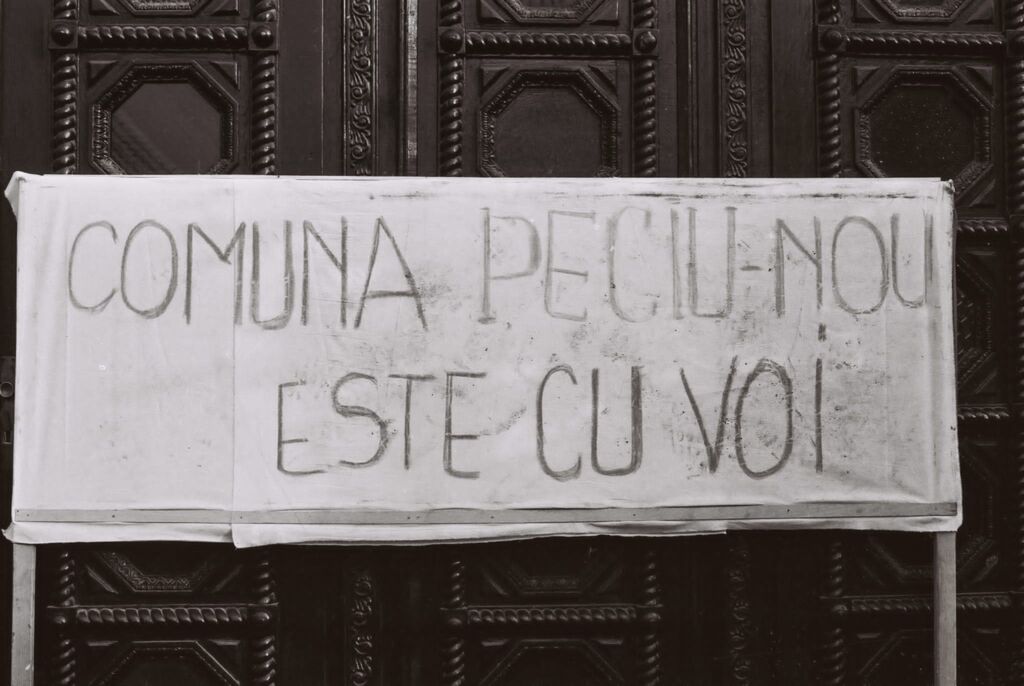 COMUNA PECIU-NOU
ESTE CU VOI